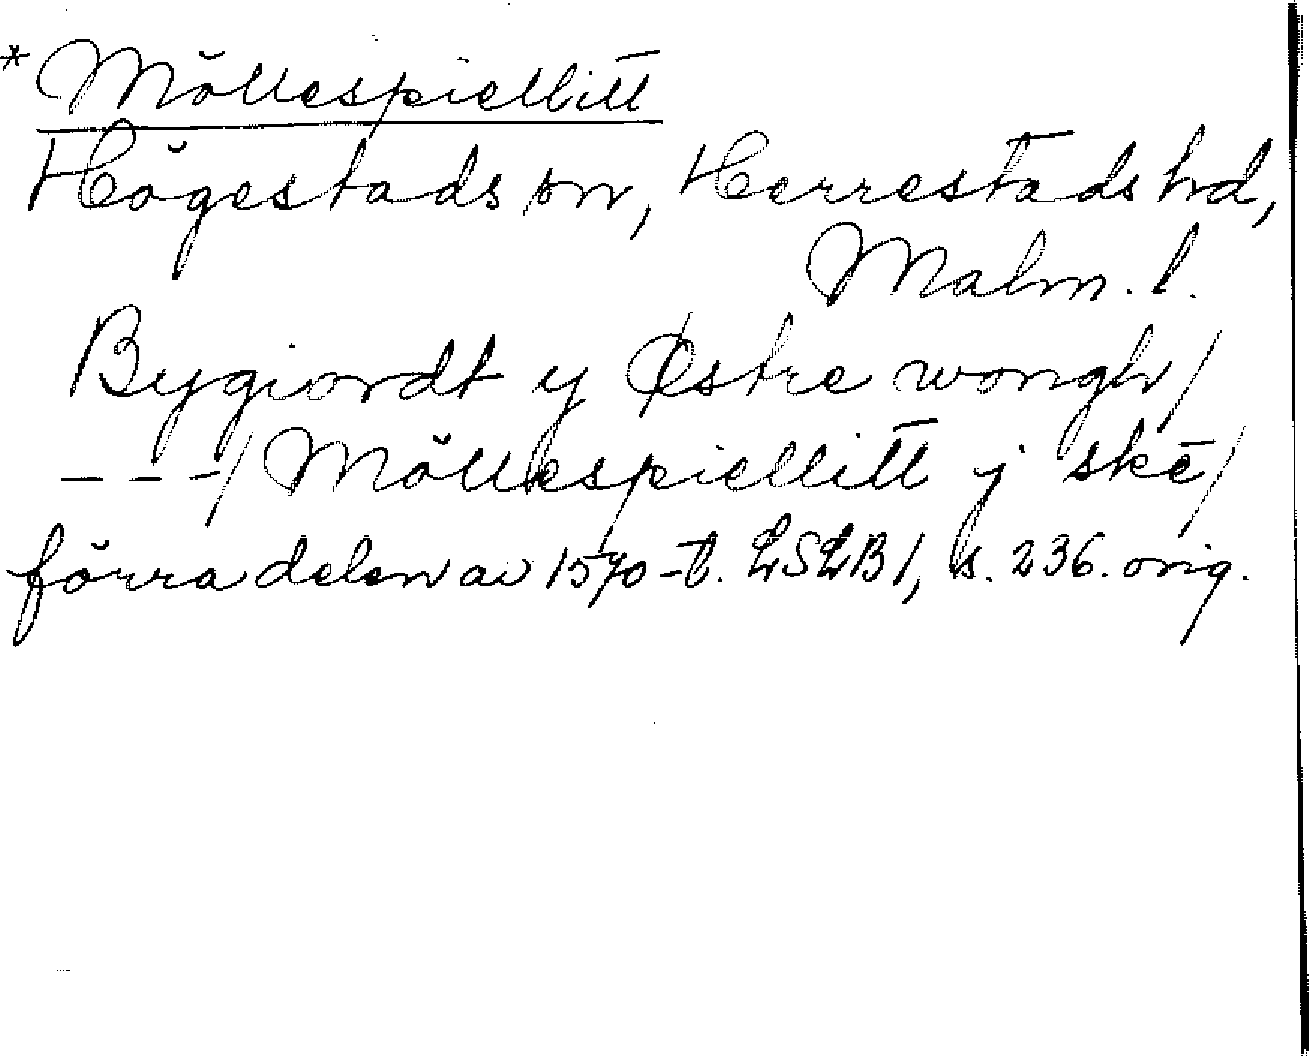 * Möllespiellitt
Högestads sn, Herrestads hd,
Malm. l.
Bygiordt y Østre wongh/
- - -/ Möllespiellitt j skē/
förra delen av 1570-t. LSLB 1, s. 236. orig.